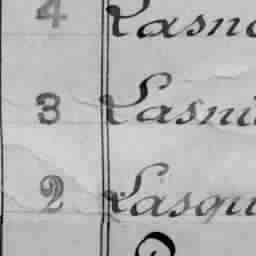 4 Lasn
3 Lasni
2 Lasqu